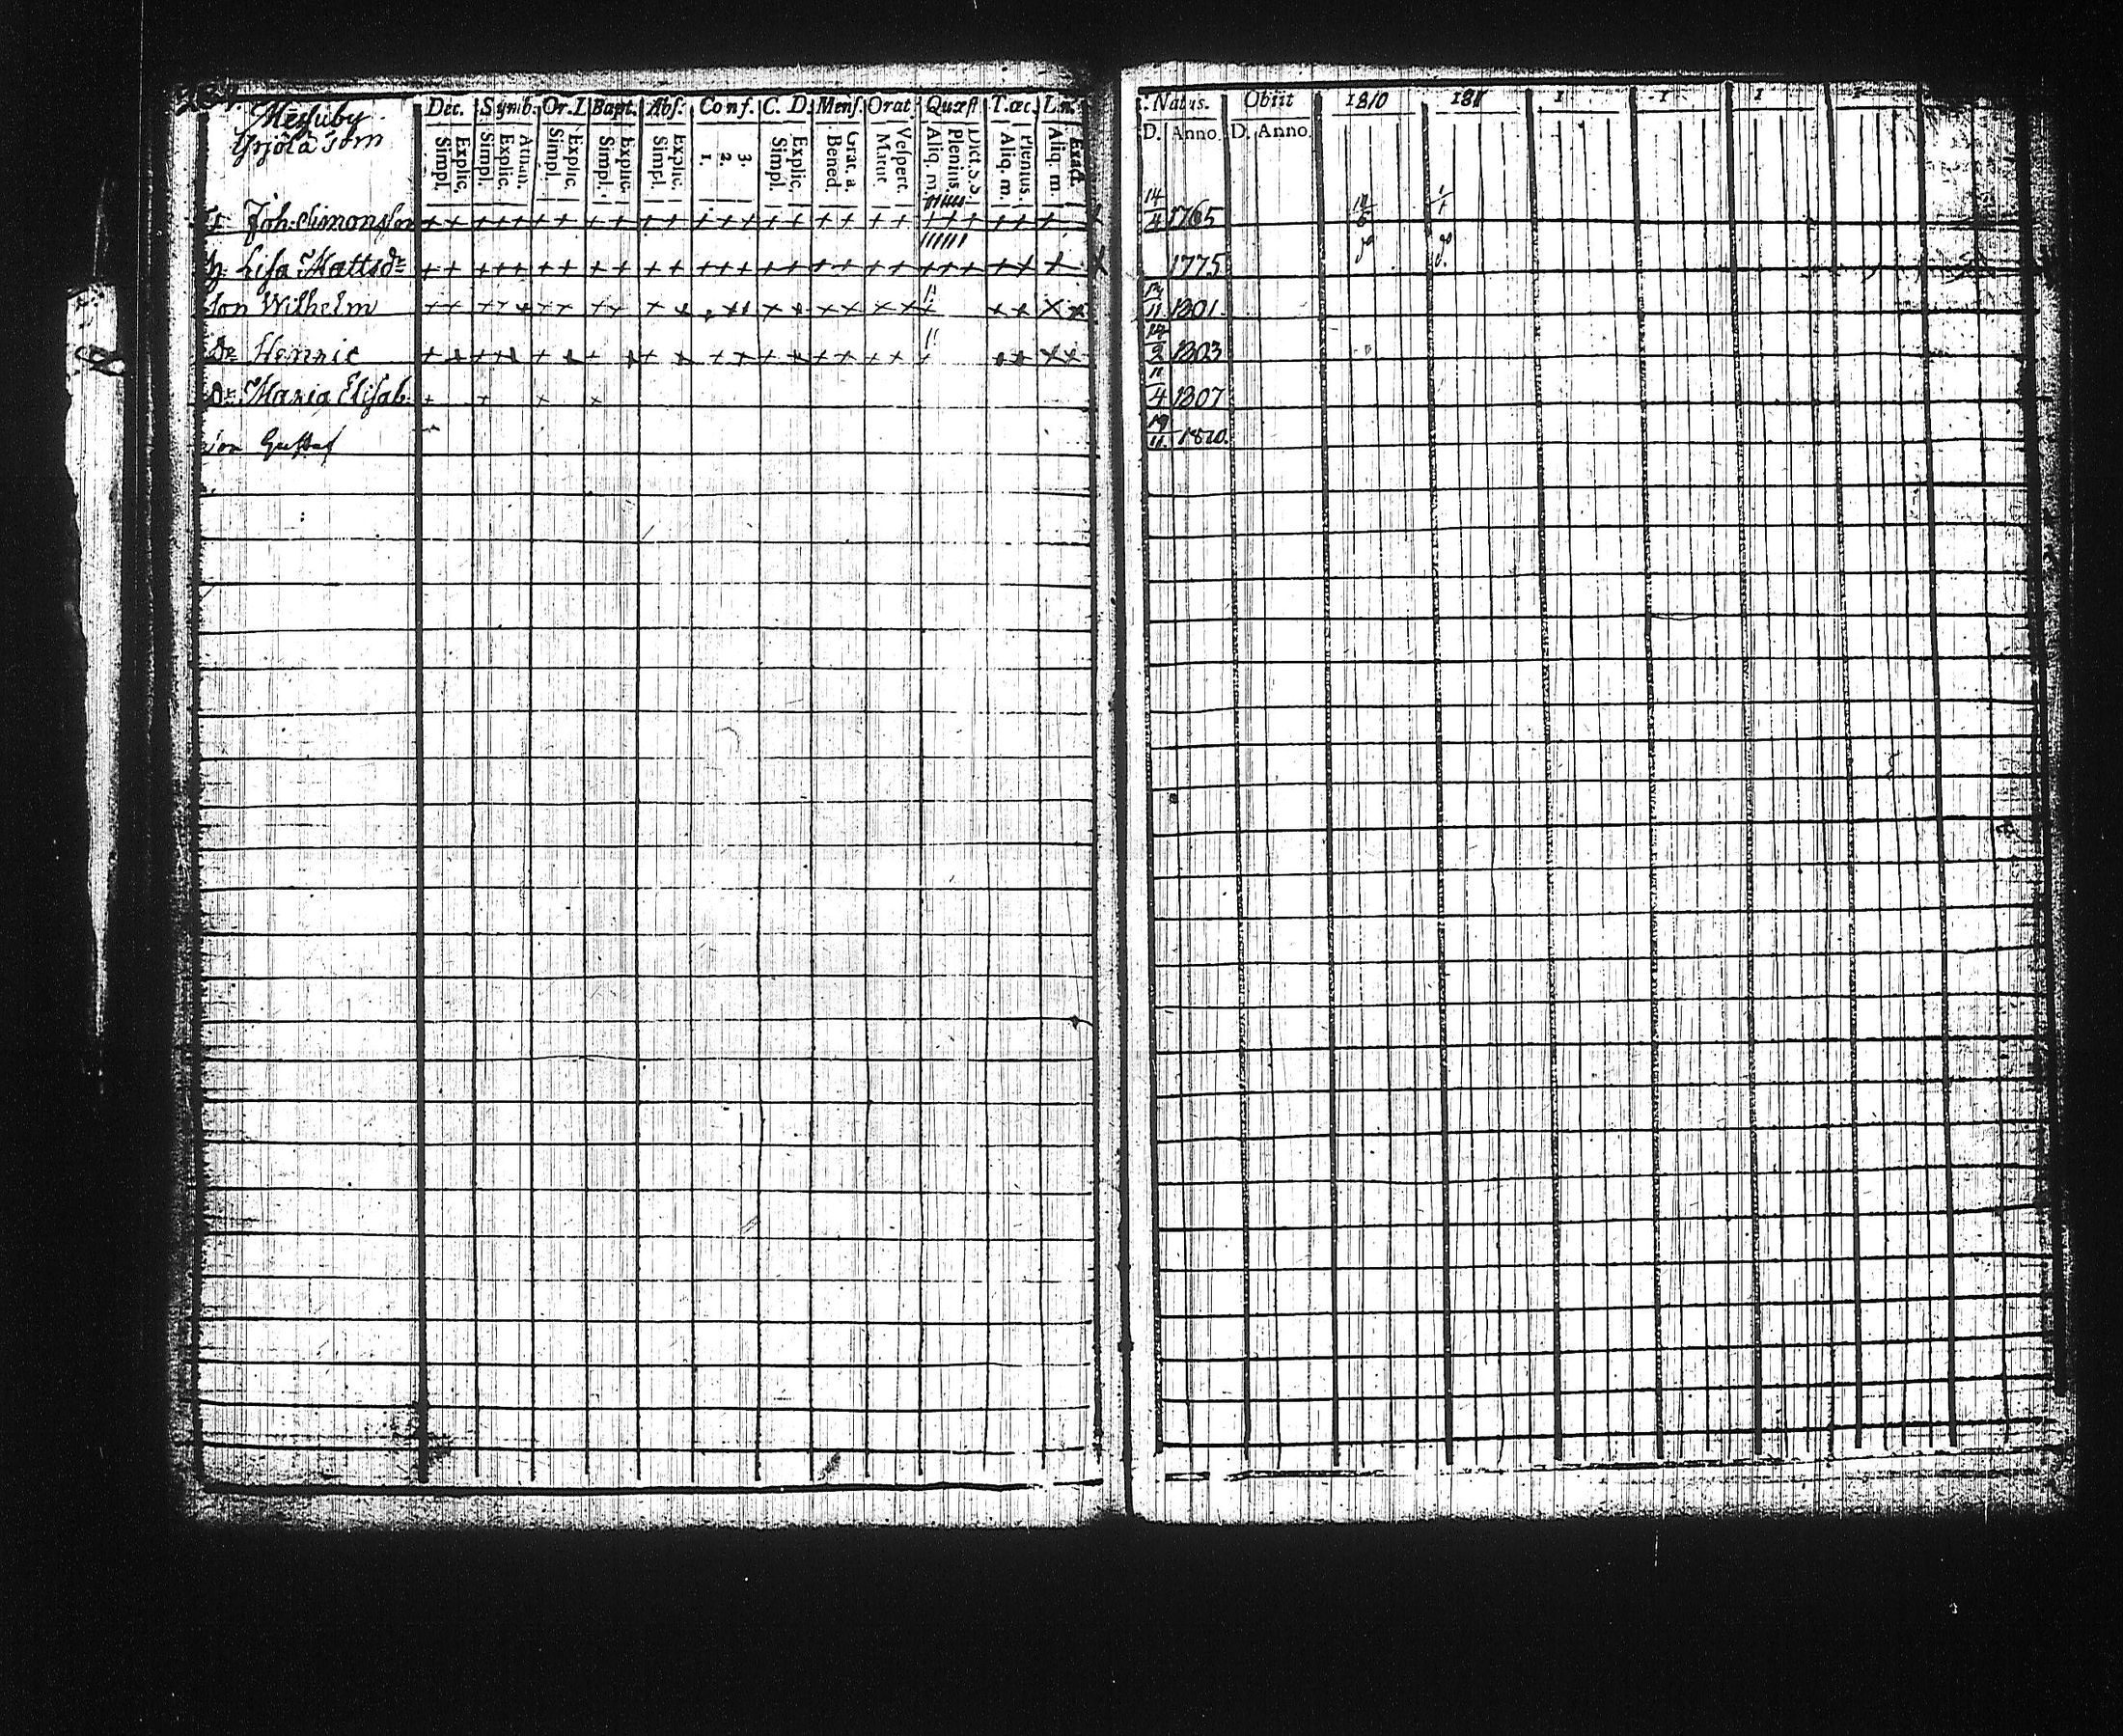 Messuby
Yrjölä som
Dec. Symb. Or. D Bapt. Abs. Conf. C. D. Mens. Orat. Quæst. T. œc. L. n.
Simpl. Explic. Simpl. Explic. Athan. Simpl. Explic. Simpl. Explic. Simpl. Explic. 1. 2. 3. Simpl. Explic. Bened. Grat. a. Matut. Vespert. Aliq. m. Plenius. Dict. S. S. Aliq. m. Plenius. Aliq. m. Exact.
Natus. Obiit 1810 181 1 1 1 1
D. Anno. D. Anno.
Joh. Simonsson 14/4 1765
h. Lisa Mattsdr 1775
Son Wilhelm 11 1801
Dr Hennric 2 1803
Dr Maria Elisab. 4 1807
son Gustaf 19/11. 1810.